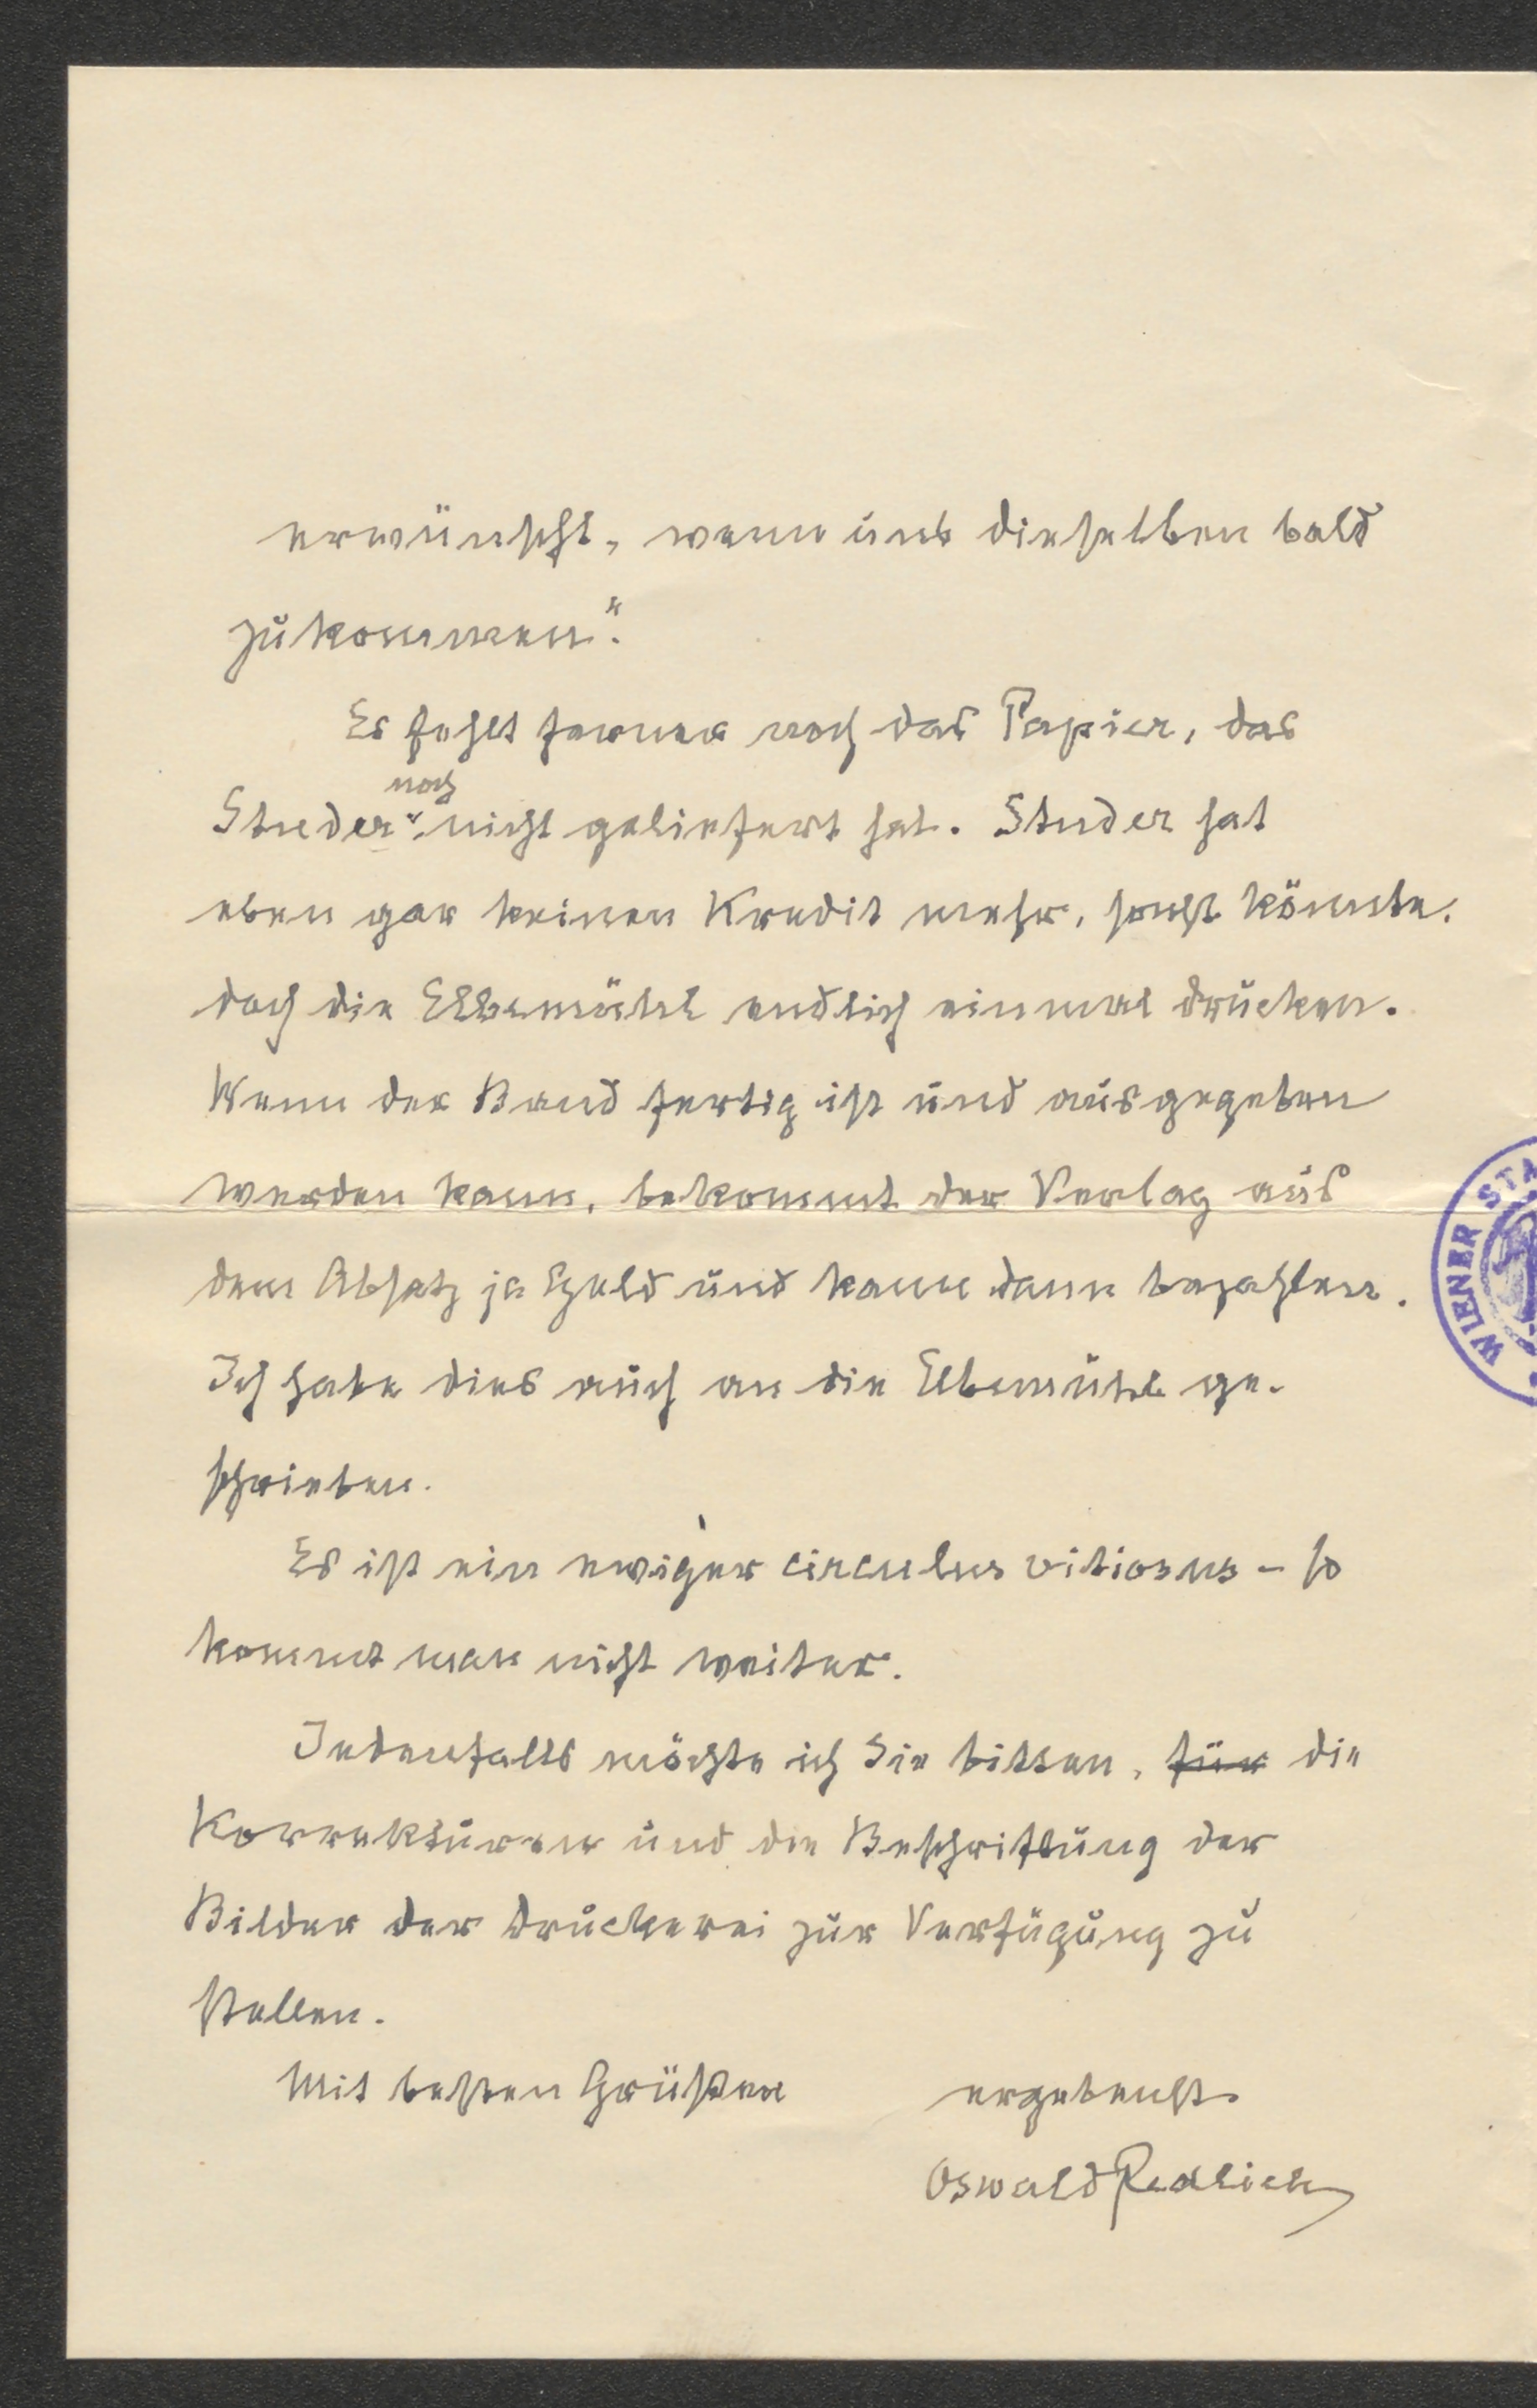 erwünscht, wenn uns dieselben bald
zukommen".
Es fehlt ferner noch das Papier, das
noch
Studer nicht geliefert hat. Studer hat
eben gar keinen Kredit mehr, sonst könnte
doch die Elbemühl endlich einmal drucken.
Wenn der Band fertig ist und ausgegeben
werden kann, bekommt der Verlag aus
dem Absatz ja Geld und kann dann bezahlen.
Ich habe dies auch an die Elbemühl ge-
schrieben.
Es ist ein ewiger circulus vitiosus - so
kommt man nicht weiter.
Jedenfalls möchte ich Sie bitten, für die
Korrekturen und die Beschriftung der
Bilder der Druckerei zur Verfügung zu
stellen.
Mit besten Grüßen ergebenst
Oswald Redlich
WIENER STA